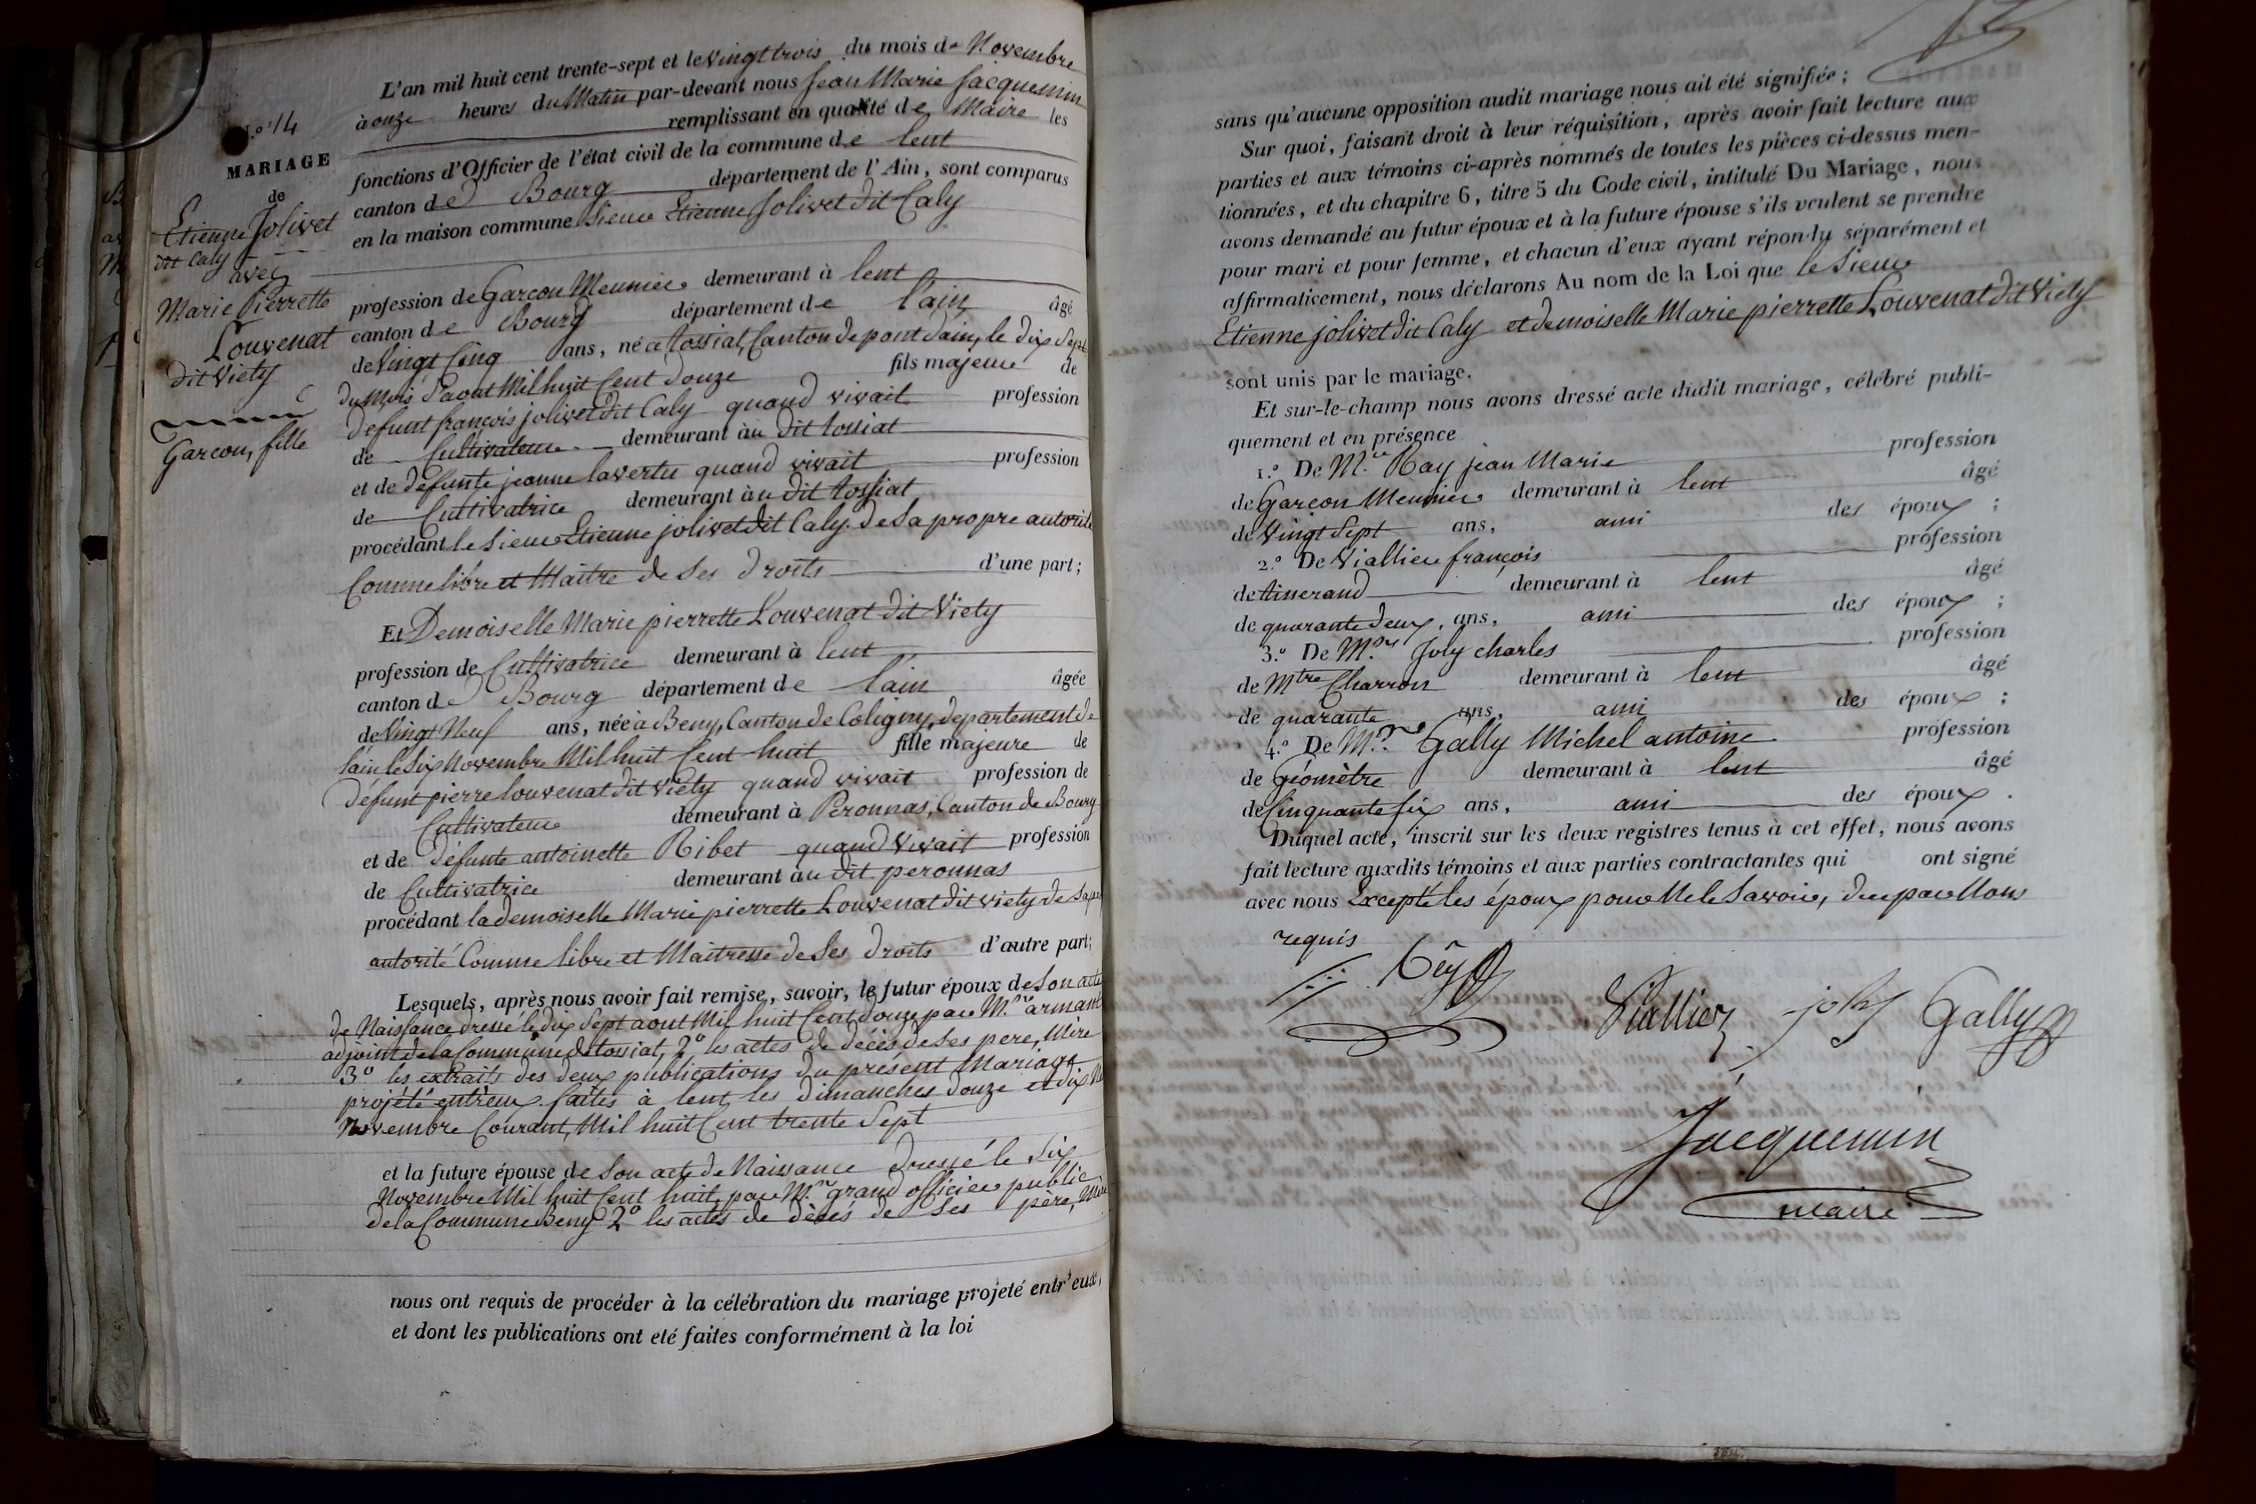 N.º 14
MARIAGE
de
Etienne Jolivet
dit Caly
avec
Marie Pierrette
Louvenat
dit Viety
Garcon, fille
L'an mil huit cent trente-sept et le vingt trois du mois de Novembre
à onze heures du Matin par-devant nous Jean Marie Jacquemin
remplissant en qualité de Maire les
fonctions d'Officier de l'état civil de la commune de lent
canton de Bourg département de l'Ain, sont comparus
en la maison commune Sieur Etienne Jolivet dit Caly
profession de Garcon Meunier demeurant à lent
canton de Bourg département de l'ain âgé
de Vingt Cinq ans, né à tossiat, Canton de pont dain, le dix Sept
du Mois d'aout Mil huit Cent douze fils majeur de
defunt françois jolivet dit Caly quand vivait profession
de Cultivateur demeurant àu dit tossiat
et de defunte jeanne lavertu quand vivait profession
de Cultivatrice demeurant àu dit tossiat
procédant le Sieur Etienne jolivet dit Caly de Sa propre autorité
Comme libre et Maitre de Ses droits d'une part;
Et Demoiselle Marie pierrette Louvenat dit Viety
profession de Cultivatrice demeurant à lent
canton de Bourg département de l'ain âgée
de Vingt Neuf ans, née à Beny, Canton de Coligny, departement de
l'ain le Six Novembre Mil huit Cent huit fille majeure de
défunt pierre louvenat dit Viety quand vivait profession de
Cultivateur demeurant à Peronnas, Canton de Bourg
et de défunte antoinette Ribet quand Vivait profession
de Cultivatrice demeurant àu dit peronnas
procédant la demoiselle Marie pierrette Louvenat dit viety de Sa
autorité Comme libre et Maitresse de Ses droits d'autre part;
Lesquels, après nous avoir fait remise, savoir, le futur époux de Son acte
de Naissance dressé le dix Sept aout Mil huit Cent douze par M.r armand
adjoint de la Commune de tossiat, 2º les actes de décès de Ses pere, Mère
3º les extraits des deux publications du présent Mariage
projété entr'eux faites à lent les dimanches douze et dix
Novembre Courant, Mil huit Cent trente Sept
et la future épouse de Son acte de Naissance dressé le Six
Novembre Mil huit Cent huit, par M.r grand officier public
de la Commune Beny 2º les actes de décès de Ses père, Mère
nous ont requis de procéder à la célébration du mariage projeté entr'eux,
et dont les publications ont eté faites conformément à la loi
sans qu'aucune opposition audit mariage nous ait été signifiée;
Sur quoi, faisant droit à leur réquisition, après avoir fait lecture aux
parties et aux témoins ci-après nommés de toutes les pièces ci-dessus men-
tionnées, et du chapitre 6, titre 5 du Code civil, intitulé Du Mariage, nous
avons demandé au futur époux et à la future épouse s'ils veulent se prendre
pour mari et pour femme, et chacun d'eux ayant répondu séparément et
affirmaticement, nous déclarons Au nom de la Loi que le Sieur
Etienne jolivet dit Caly et demoiselle Marie pierrette Louvenat dit Viety
sont unis par le mariage.
Et sur-le-champ nous avons dressé acte dudit mariage, célébré publi-
quement et en présence
1.º De M.r Ray jean Marie profession
de Garcon Meunier demeurant à lent âgé
de Vingt Sept ans, ami des époux ;
2.º De Viallier françois profession
de tisserand demeurant à lent âgé
de quarante deux, ans, ami des époux ;
3.º De M.r Joly charles profession
de Mtre Charron demeurant à lent âgé
de quarante ans, ami des époux ;
4.º De M.r Gally Michel antoine profession
de géomètre demeurant à lent âgé
de Cinquante Six ans, ami des époux .
Duquel acte, inscrit sur les deux registres tenus à cet effet, nous avons
fait lecture auxdits témoins et aux parties contractantes qui ont signé
avec nous Excepté les époux pour Ne le Savoir, de ce par Nous
requis
Viallier joly Gally
Jacquemin
maire